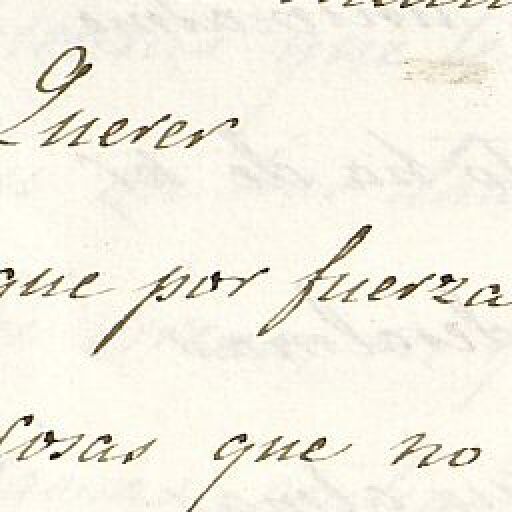 Querer
que por fuerza
cosas que no